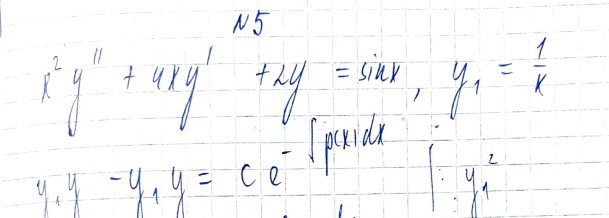 N5
x² y'' + 4xy' + 2y = sinx, y₁ = 1/x
y₁y - y₁y = c e^(-∫p(x)dx) | : y₁²